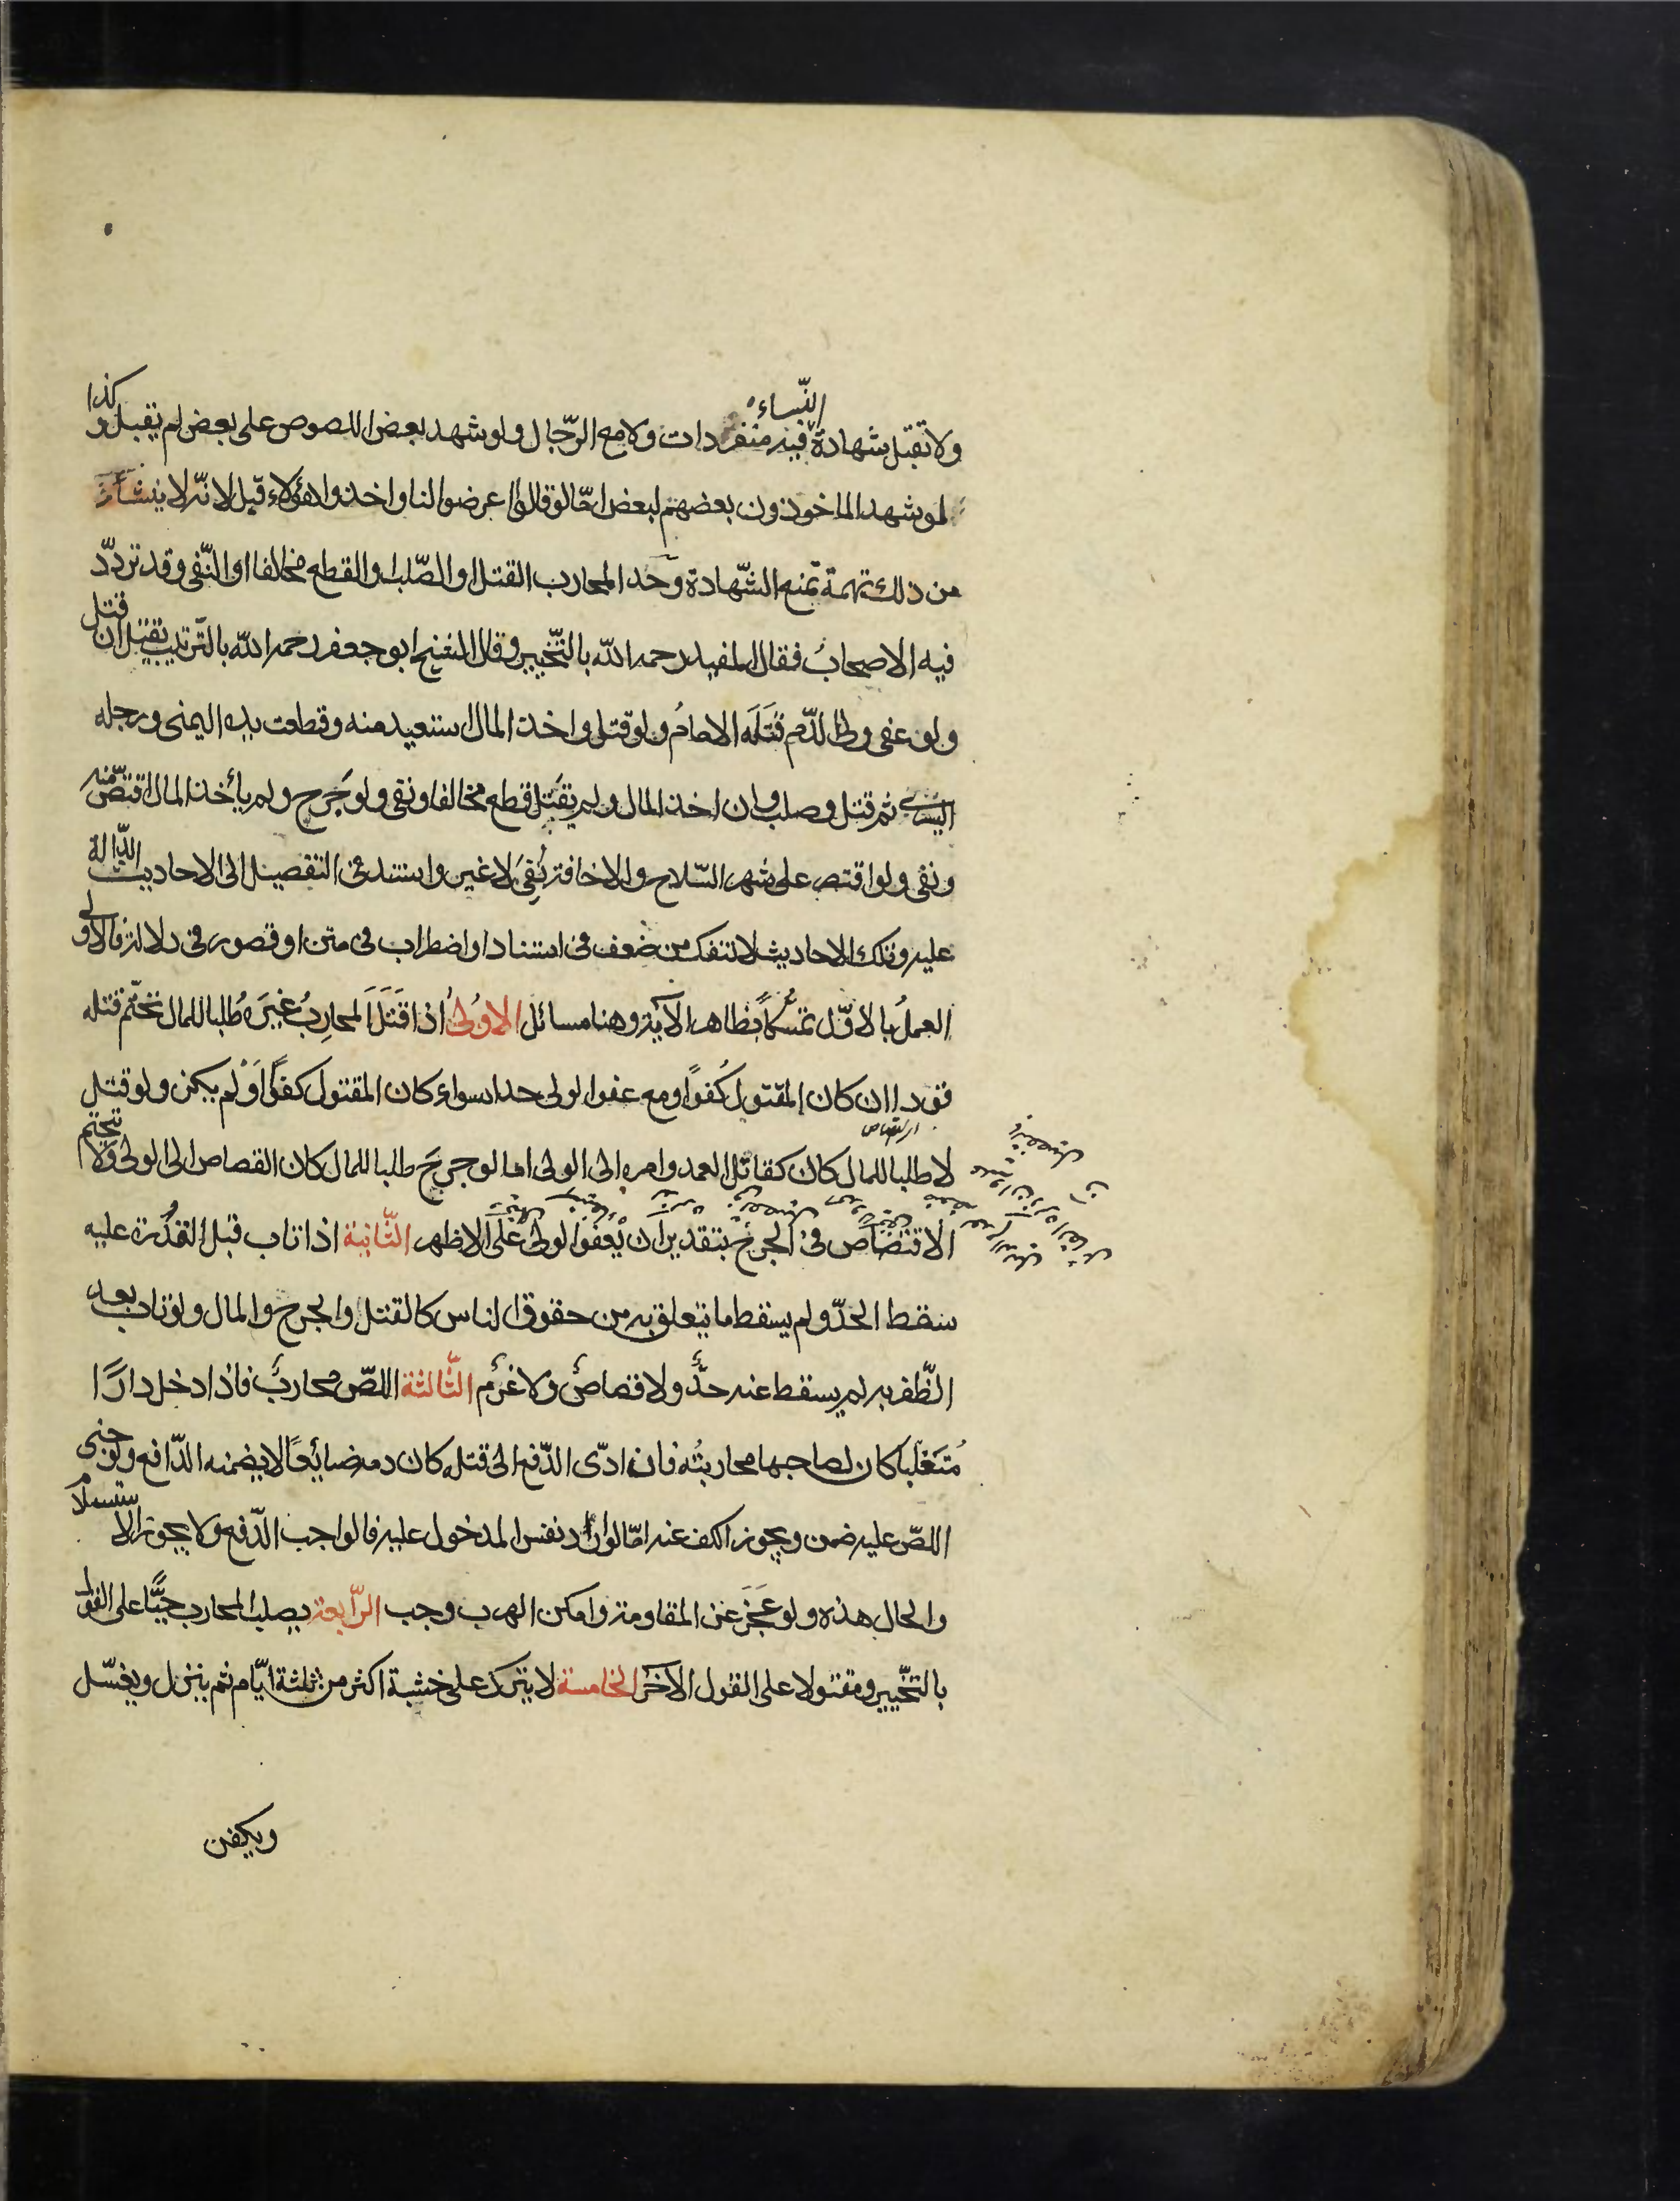 ولا تقبل شهادة النّساء فيه منفردات ولا مع الرّجال ولو شهد بعض اللصوص على بعض لم يقبل وكذا
لو شهد الماخوذون بعضهم لبعض امّا لو قالوا عرضوا لنا واخذوا هؤلاء قبل لانّه لا ينشأ
من ذلك تهمة تمنع الشّهادة وحد المحارب القتل او الصّلب او القطع مخالفا او النّفى وقد تردّد
فيه الاصحابُ فقال المفيد رحمه الله بالتّخيير وقال الشيخ ابو جعفر رحمه الله بالتّرتيب يقتل ان قتل
ولو عفى ولى الدّم قَتَلَه الامامُ ولو قتل واخذ المال استعيد منه وقطعت يده اليمنى ورجله
اليسرى ثم قتل وصلب وان اخذ المال ولم يقتل قطع مخالفا ونفى ولو جَرح ولم يأخذ المال اقتصّ منه
ونفى ولو اقتصر على شهر السّلاح والاخافة نُفِىَ لا غير واستند فى التفصيل الى الاحاديث الدّالة
عليه وتلك الاحاديث لا تنفك من ضعف فى اسناد او اضطراب فى متن او قصور فى دلالة فالاولى
العملُ بالاوّل تمسّكاً بظاهر الآية وهنا مسائل الاُولىُ اذا قَتَلَ المحارِبُ غيَرهُ طلبا للمال تحتّم قتله
قودا ان كان المقتول كُفوًا ومع عفو الولى حدا سواء كان المقتول كفوًا اَوْ لم يكن ولو قتل
لا طلبا للمال كان كقاتل العمد وامره الى الولى اما لو جرحَ طلبا للمال كان القصاص الى الولى ولا يتحتم
الاقتصاص فى الجرح بتقدير ان يعفو الولى على الاظهر الثّانية اذا تاب قبل القدرة عليه
سقط الحدّ ولم يسقط ما يتعلق به من حقوق الناس كالقتل والجرح والمال ولو تاب بعد
الظّفر به لم يسقط عنه حدٌّ ولا قصاص ولا غرم الثّالثة اللصّ محارب فاذا دخل دارًا
مُتَغلّبا كان لصاحبها محاربتُه فان ادّى الدّفع الى قتله كان دمه ضائعًا لا يضمنه الدّافع ولو جنى
اللصّ عليه ضمن ويجوز الكف عنه امّا لو اراد نفس المدخول عليه فالواجب الدّفع ولا يجوز الاستسلام
والحال هذه ولو عَجَزَ عن المقاومة وامكن الهرب وجب الرّابعة يصلب المحارب حيًّا على القول
بالتخّيير ومقتولا على القول الآخر الخامسة لا يترك على خشبة اكثر من ثلثة ايّام ثم ينزل ويغسّل
ويكفن